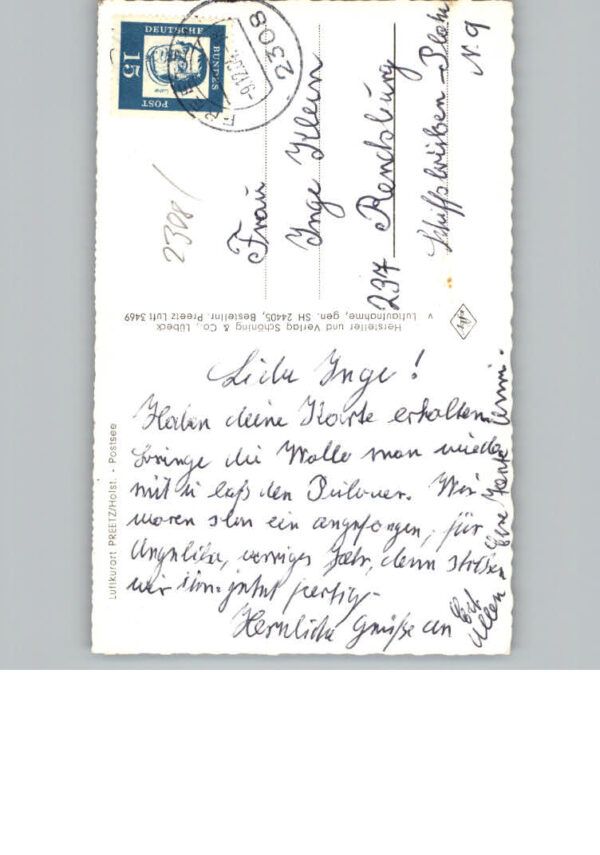 DEUTSCHE
BUNDES
POST
15
2308
2308/
Frau
Inge Klein
237 Rendsburg
Schiffbrücken-Platz
N. 9
Hersteller und Verlag Schöning & Co., Lübeck
Luftaufnahme, gen. SH 24405, Bestellnr. Preetz Luft 3469
Luftkurort PREETZ/Holst. - Postsee
Liebe Inge!
Haben deine Karte erhalten.
Bringe die Wolle man wieder
mit u. laß den Pulover. Wir
waren schon ein angefangen, für
Angelika, voriges Jahr, denn stricken
wir ihn jetzt fertig.
Herzliche Grüße an
Euch
Allen Eure Tante